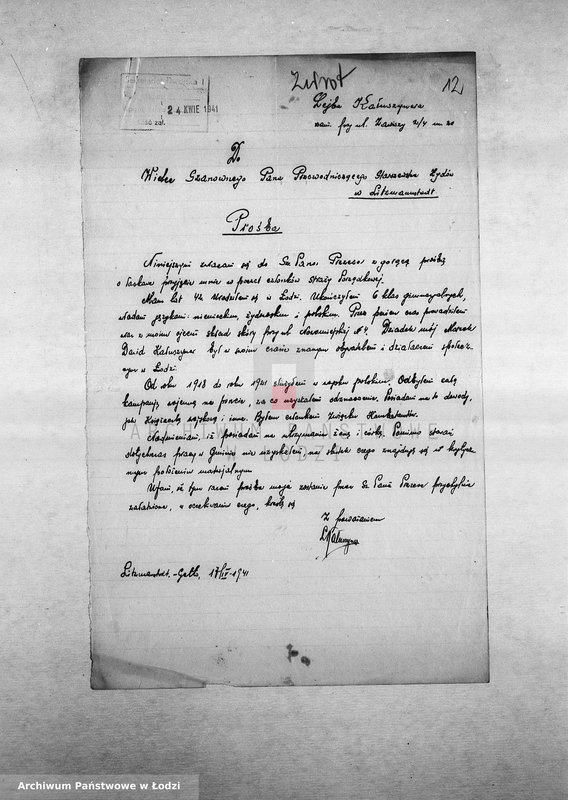 24 KWIE 1941
Zwrot
12
Lejba Kałuszyner
zam. przy ul. Zawiszy 21/4 m. 20
Do
Wielce Szanownego Pana Przewodniczącego Starszeństwa Żydów
w Litzmannstadt
Prośba
Niniejszym zwracam się do Sz. Pana Prezesa z gorącą prośbą
o łaskawe przyjęcie mnie w poczet członków straży Porządkowej.
Mam lat 42. Urodziłem się w Łodzi. Ukończyłem 6 klas gimnazjalnych,
władam językami: niemieckim, żydowskim i polskim. Przez lat prowadziłem
wraz z moim ojcem skład skóry przy ul. Nowomiejskiej N 4. Dziadek mój Marek
Dawid Kałuszyner był w swoim czasie znanym obywatelem i działaczem społecz-
nym w Łodzi.
Od roku 1918 do roku 1921 służyłem w wojsku polskim. Odbyłem całą
kampanię wojenną na froncie, za co uzyskałem odznaczenie. Posiadam na to dowody,
jak Książeczkę wojskową i inne. Byłem członkiem Związku
Nadmieniam, iż posiadam na utrzymaniu żonę i córkę. Pomimo starań
dotychczas pracy w Gminie nie uzyskałem, na skutek czego znajduję się w krytycz-
nym położeniu materjalnym.
Ufam, że tym razem prośba moja zostanie przez Sz. Pana Prezesa przychylnie
załatwiona, w oczekiwaniu czego, kreślę się
Z poważaniem
LKałuszyner
Litzmannstadt.-Getto, 17/IV-1941
ARCHIWUM PAŃSTWOWE
W ŁODZI
Archiwum Państwowe w Łodzi